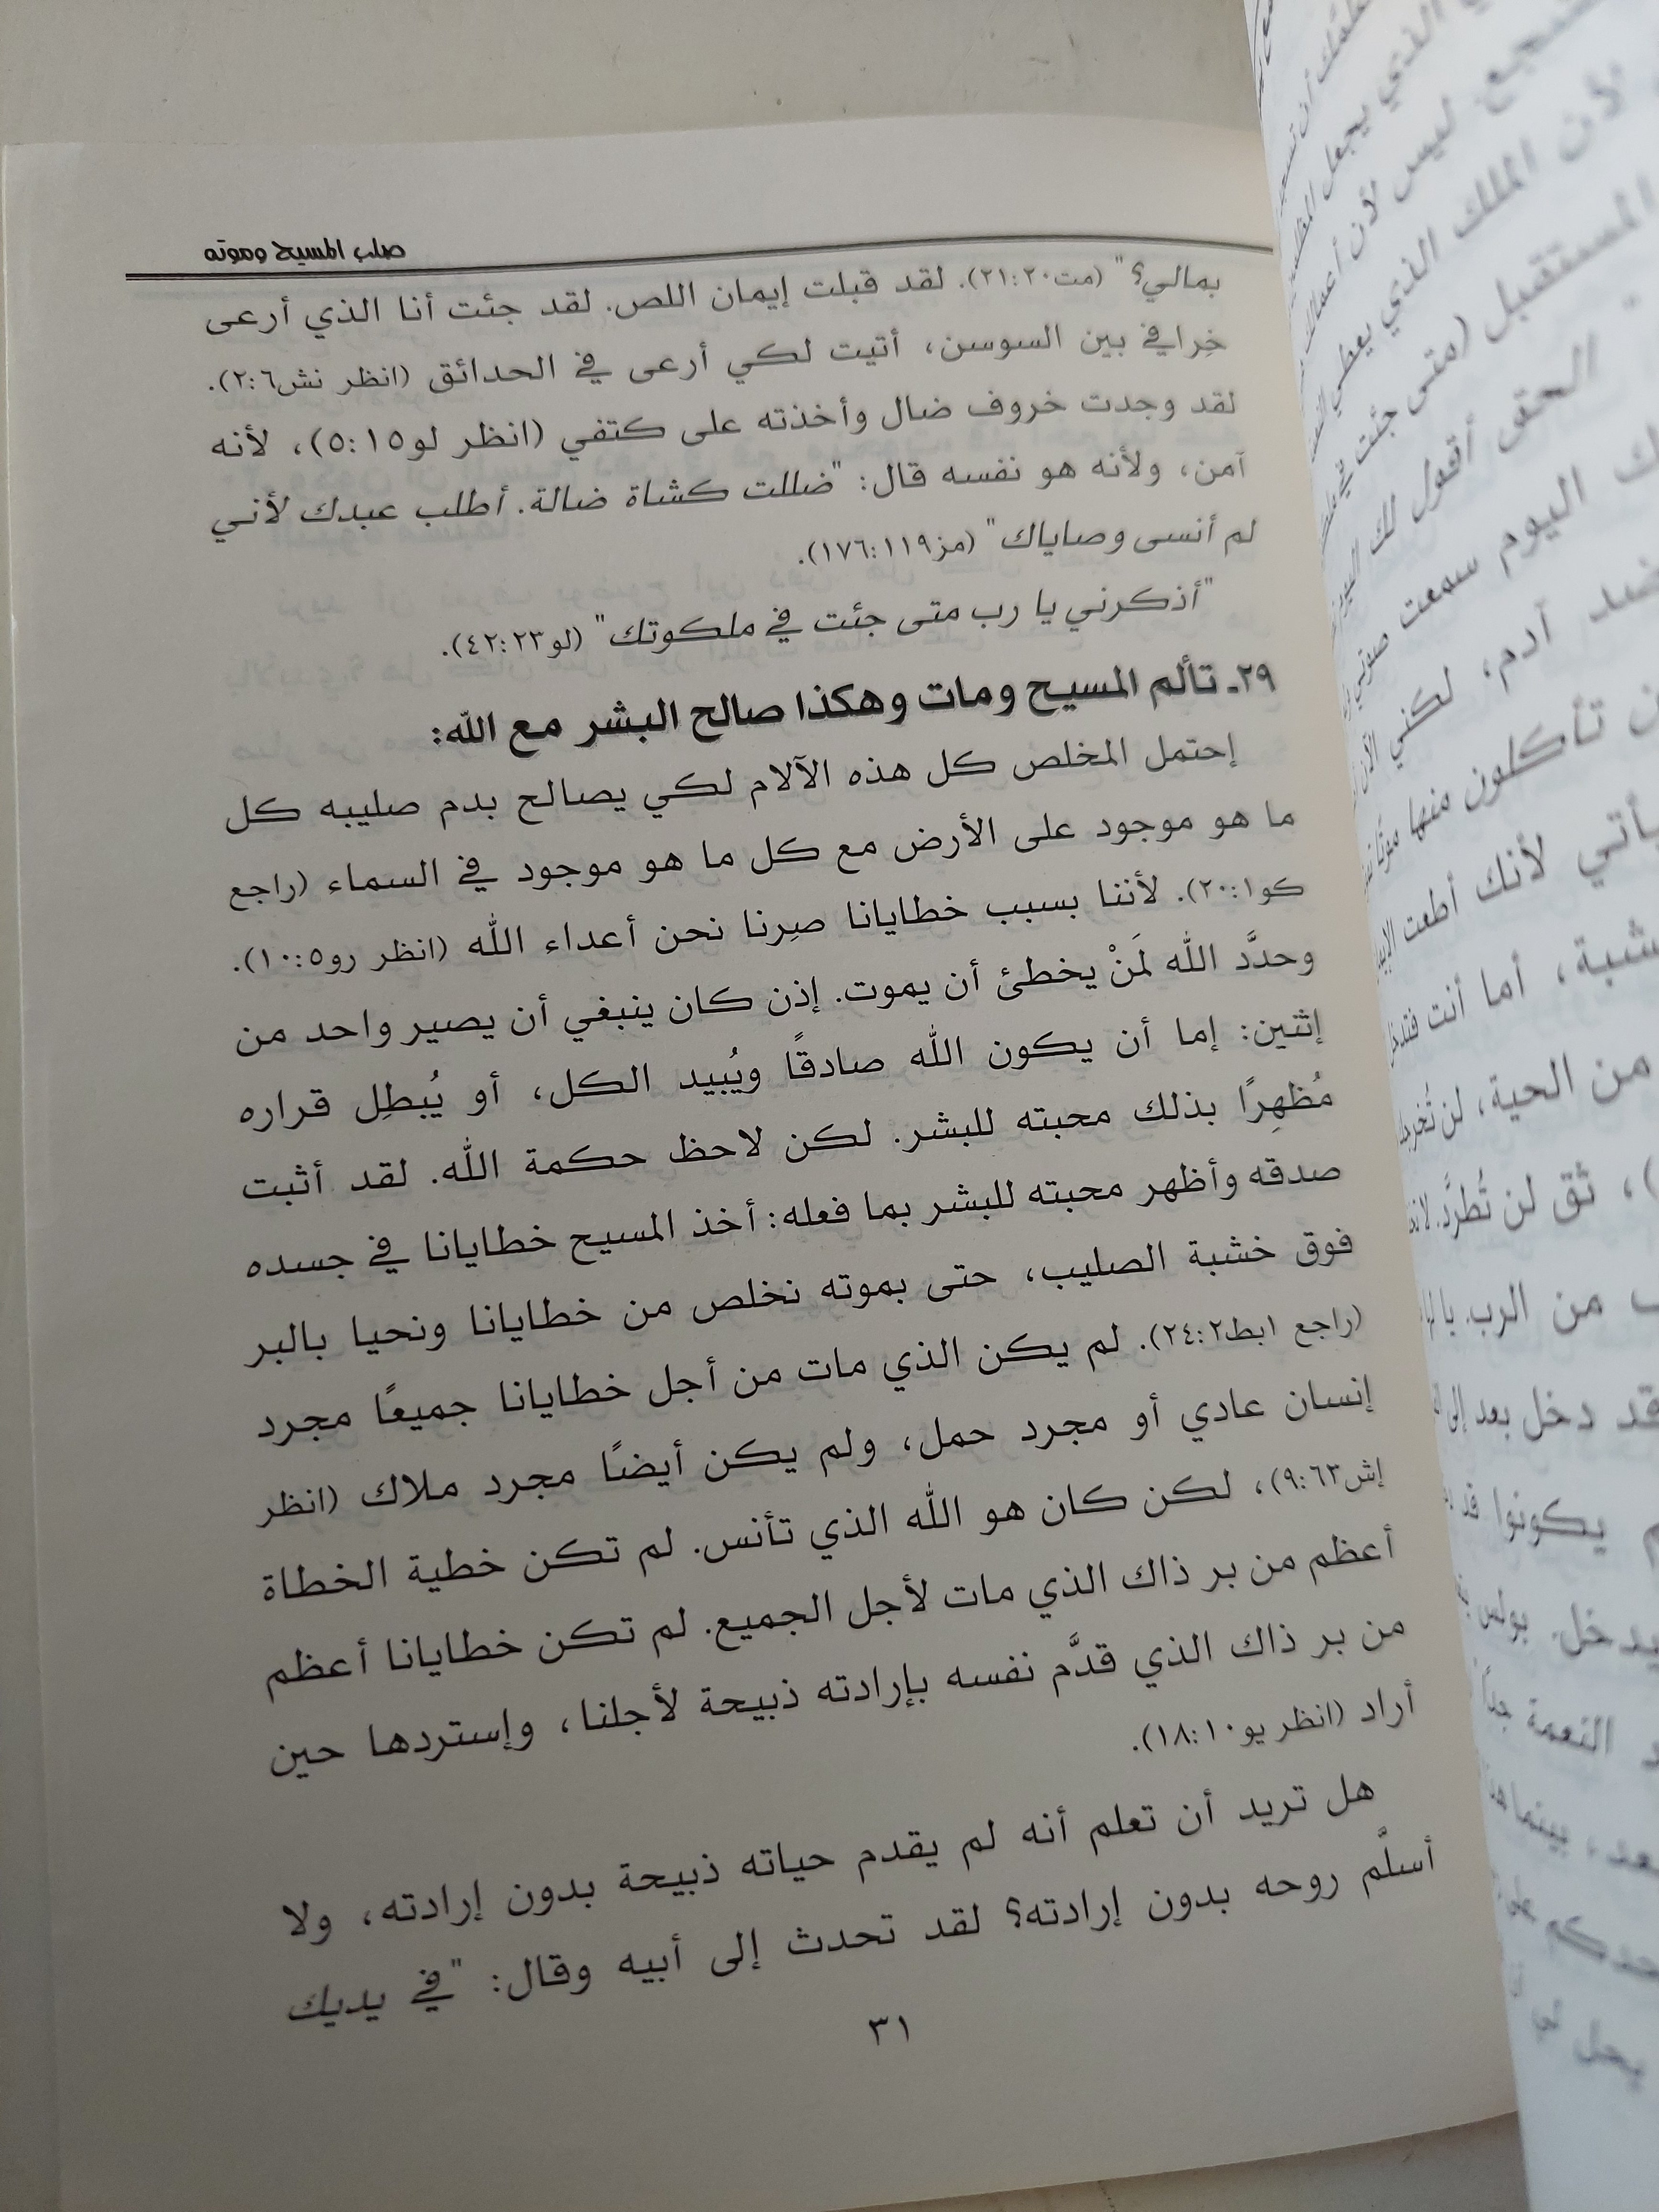 صلب المسيح وموته
بمالي؟" (مت٢٠:٢١). لقد قبلت إيمان اللص. لقد جئت أنا الذي أرعى
خِرافي بين السوسن، أتيت لكي أرعى في الحدائق (انظر نش٢:٦).
لقد وجدت خروف ضال وأخذته على كتفي (انظر لو٥:١٥)، لأنه
آمن، ولأنه هو نفسه قال: "ضللت كشاة ضالة. أطلب عبدك لأني
لم أنسى وصاياك" (مز١٧٦:١١٩).
"أذكرني يا رب متى جئت في ملكوتك" (لو٤٢:٢٣).
٢٩ـ تألم المسيح ومات وهكذا صالح البشر مع الله:
إحتمل المخلص كل هذه الآلام لكي يصالح بدم صليبه كل
ما هو موجود على الأرض مع كل ما هو موجود في السماء (راجع
كو٢٠:١). لأننا بسبب خطايانا صِرنا نحن أعداء الله (انظر رو١٠:٥).
وحدَّد الله لَمَنْ يخطئ أن يموت. إذن كان ينبغي أن يصير واحد من
إثنين: إما أن يكون الله صادقًا ويُبيد الكل، أو يُبطِل قراره
مُظهِرًا بذلك محبته للبشر. لكن لاحظ حكمة الله. لقد أثبت
صدقه وأظهر محبته للبشر بما فعله: أخذ المسيح خطايانا في جسده
فوق خشبة الصليب، حتى بموته نخلص من خطايانا ونحيا بالبر
(راجع ١بط٢٤:٢). لم يكن الذي مات من أجل خطايانا جميعًا مجرد
إنسان عادي أو مجرد حمل، ولم يكن أيضًا مجرد ملاك (انظر
إش٩:٦٣)، لكن كان هو الله الذي تأنس. لم تكن خطية الخطاة
أعظم من بر ذاك الذي مات لأجل الجميع. لم تكن خطايانا أعظم
من بر ذاك الذي قدَّم نفسه بإرادته ذبيحة لأجلنا، وإستردها حين
أراد (انظر يو١٨:١٠).
هل تريد أن تعلم أنه لم يقدم حياته ذبيحة بدون إرادته، ولا
أسلَّم روحه بدون إرادته؟ لقد تحدث إلى أبيه وقال: "في يديك
٣١
الذي يجعل
ليس لأن أعمالك
لأن الملك الذي يعطي
المستقبل (متى جئت في
الحق أقول لك اليوم
اليوم سمعت صوتي
ضد آدم، لكني الآن
تأكلون منها موتًا
يأتي لأنك أطعت
أما أنت فتدخل
من الحية، لن تُخرجك
ثق لن تُطرَّد.
من الرب.
قد دخل بعد إلى
يكونوا قد
يدخل بولس
النعمة جدًا
بينما